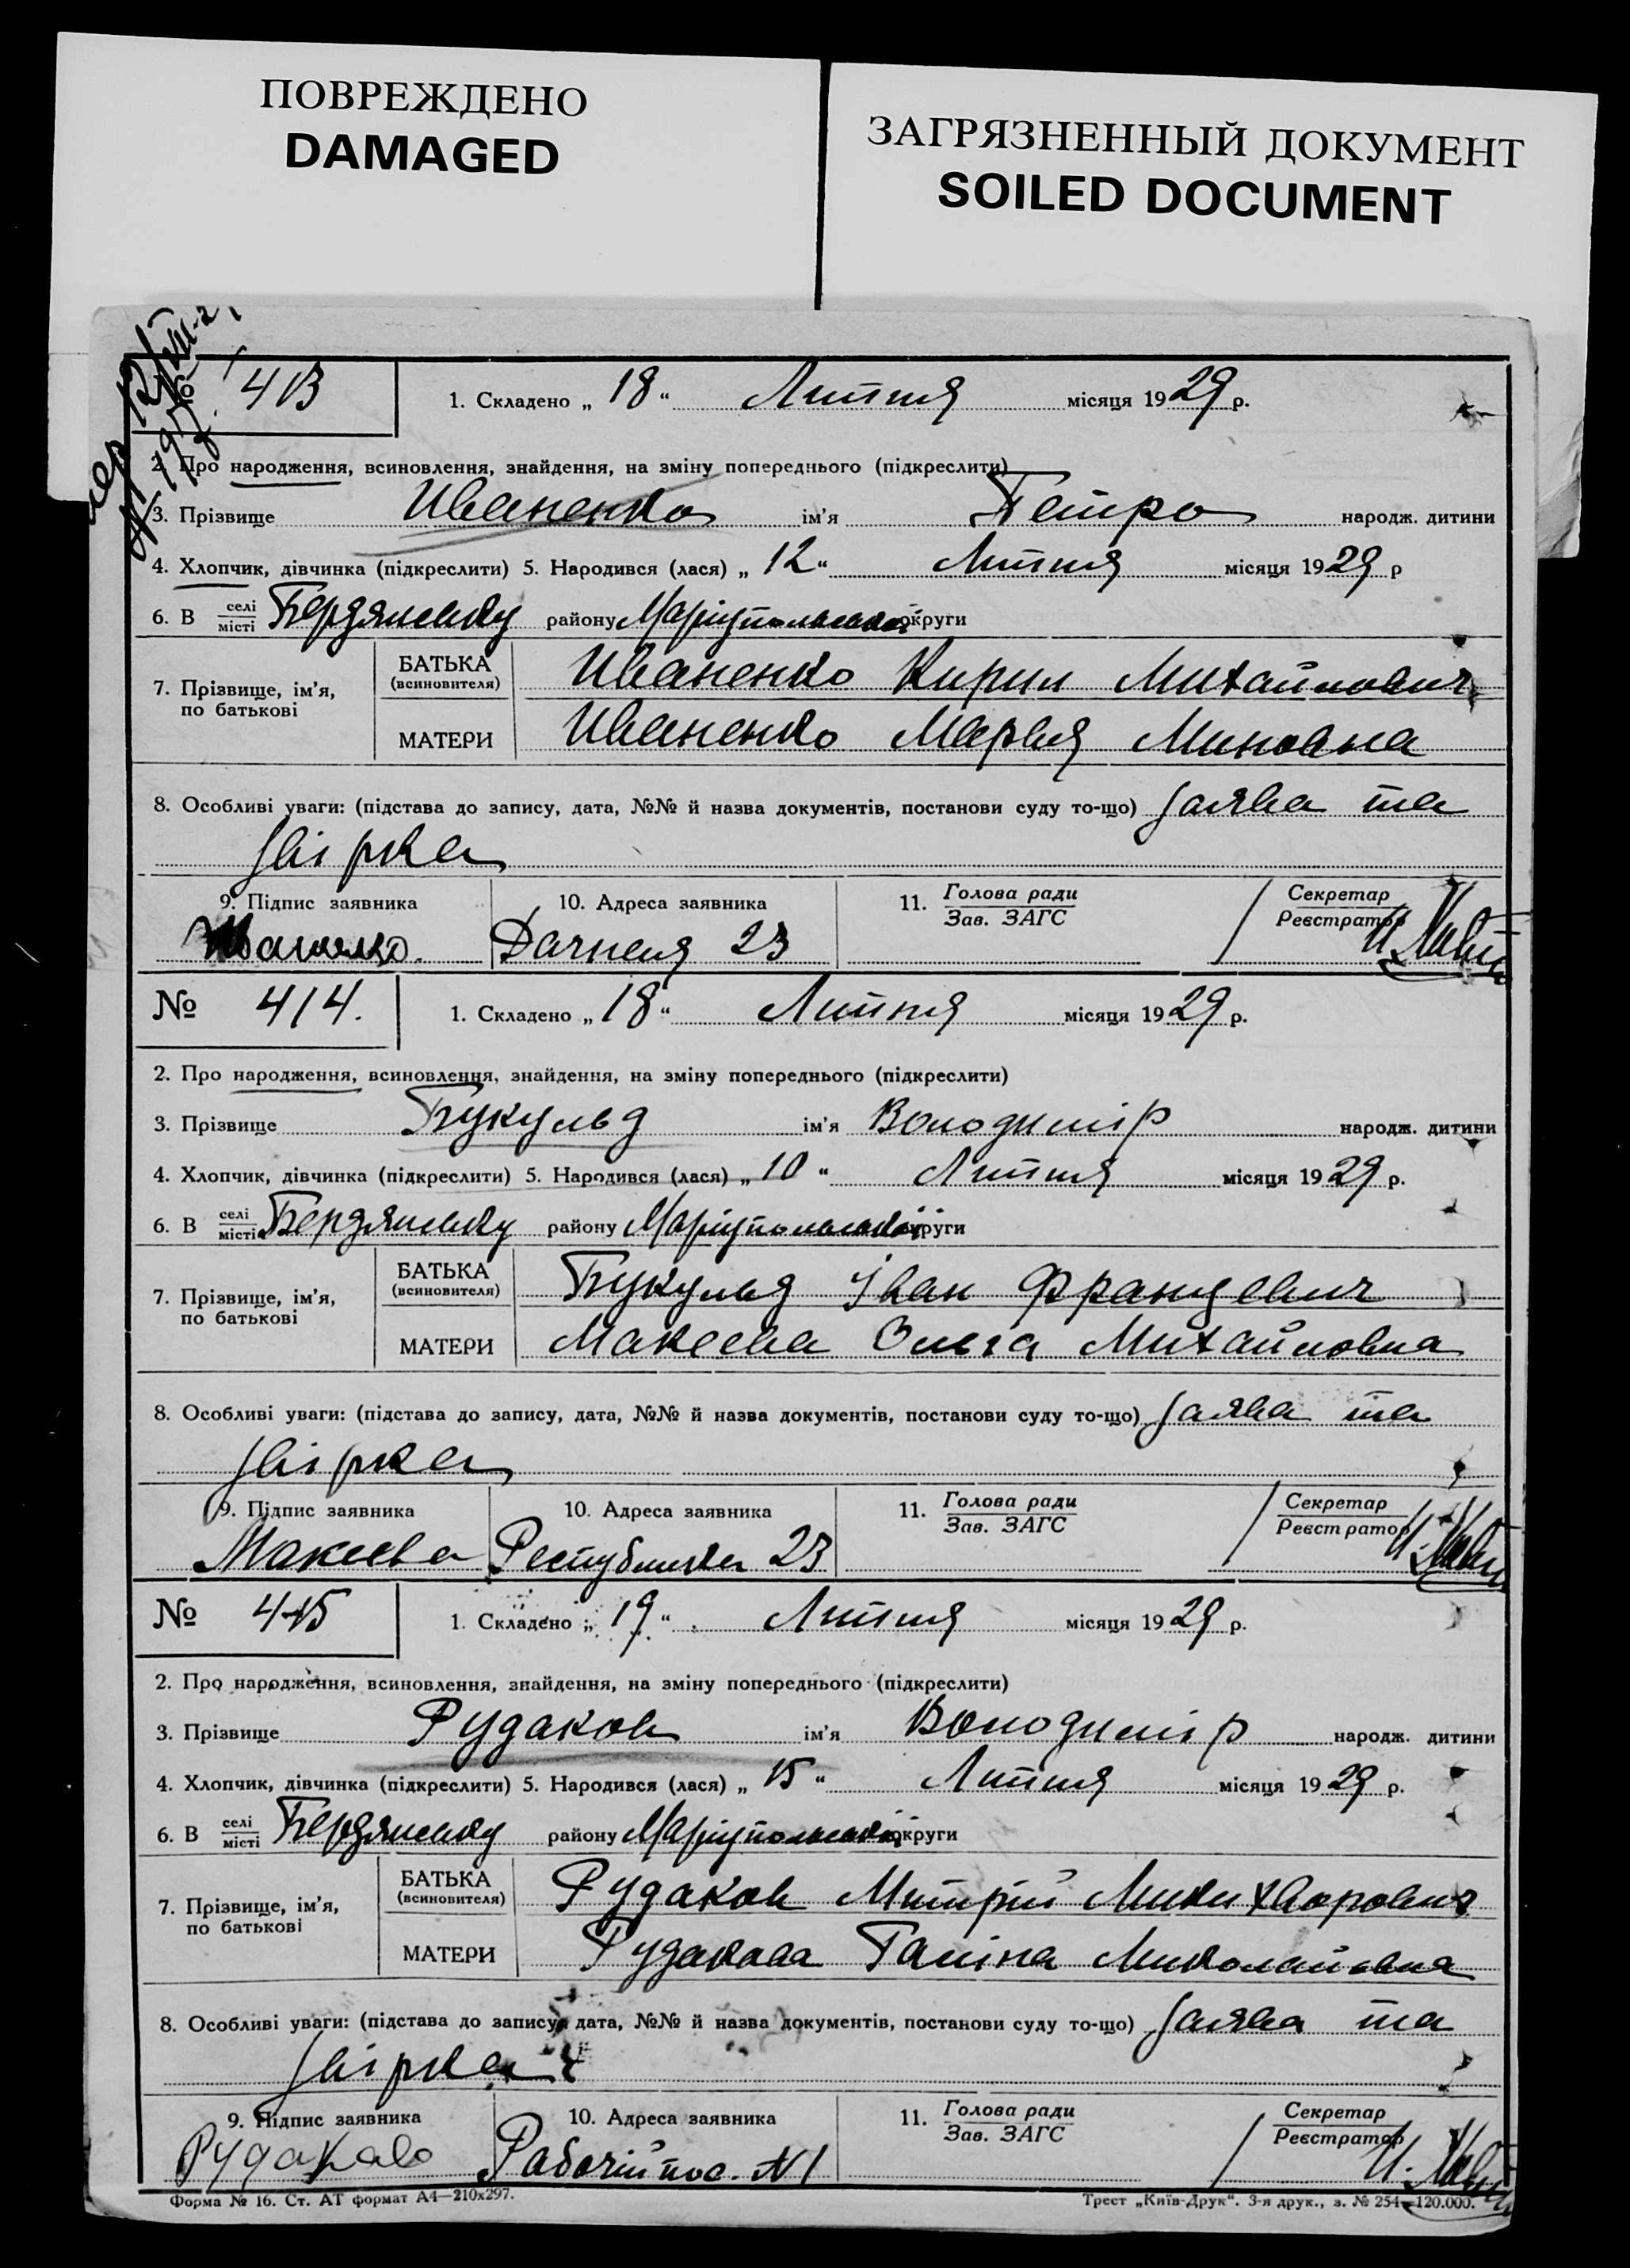 ПОВРЕЖДЕНО
DAMAGED
ЗАГРЯЗНЕННЫЙ ДОКУМЕНТ
SOILED DOCUMENT
№ 413
1. Складено „ 18 “ Липня місяця 1929 р.
2. Про народження, всиновлення, знайдення, на зміну попереднього (підкреслити)
3. Прізвище Иваненко ім'я Петро народж. дитини
4. Хлопчик, дівчинка (підкреслити) 5. Народився (лася) „ 12 “ Липня місяця 1929 р
6. В селі місті Бердянську району Маріупольської округи
7. Прізвище, ім'я, по батькові
БАТЬКА (всиновителя) Иваненко Кирил Михайлович
МАТЕРИ Иваненко Марья Миновна
8. Особливі уваги: (підстава до запису, дата, №№ й назва документів, постанови суду то-що) Заява та
звірка
9. Підпис заявника 10. Адреса заявника 11. Голова ради Зав. ЗАГС / Секретар Реєстратор
Дачная 23
№ 414.
1. Складено „ 18 “ Липня місяця 1929 р.
2. Про народження, всиновлення, знайдення, на зміну попереднього (підкреслити)
3. Прізвище Букульд ім'я Володимір народж. дитини
4. Хлопчик, дівчинка (підкреслити) 5. Народився (лася) „ 10 “ Липня місяця 1929 р.
6. В селі місті Бердянську району Маріупольської округи
7. Прізвище, ім'я, по батькові
БАТЬКА (всиновителя) Букульд Іван Францевич
МАТЕРИ Макеева Ольга Михайловна
8. Особливі уваги: (підстава до запису, дата, №№ й назва документів, постанови суду то-що) Заява та
звірка
9. Підпис заявника 10. Адреса заявника 11. Голова ради Зав. ЗАГС / Секретар Реєстратор
Макеева Республики 23
№ 415
1. Складено „ 19 “ Липня місяця 1929 р.
2. Про народження, всиновлення, знайдення, на зміну попереднього (підкреслити)
3. Прізвище Рудаков ім'я Володимір народж. дитини
4. Хлопчик, дівчинка (підкреслити) 5. Народився (лася) „ 15 “ Липня місяця 1929 р.
6. В селі місті Бердянську району Маріупольської округи
7. Прізвище, ім'я, по батькові
БАТЬКА (всиновителя) Рудаков Митрій Микихворович
МАТЕРИ Рудакова Галіна Миколайовна
8. Особливі уваги: (підстава до запису, дата, №№ й назва документів, постанови суду то-що) Заява та
звірка
9. Підпис заявника 10. Адреса заявника 11. Голова ради Зав. ЗАГС / Секретар Реєстратор
Рабочій пос. N 1
Форма № 16. Ст. АТ формат А4—210х297. Трест „Київ-Друк“. 3-я друк., з. № 254—120.000.